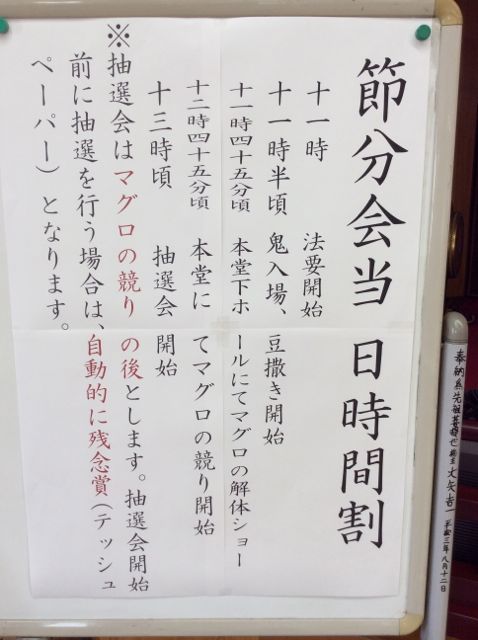 節分会当日時間割
十一時　法要開始
十一時半頃　鬼入場、豆撒き開始
十一時四十五分頃　本堂下ホールにてマグロの解体ショー
十二時四十五分頃　本堂にてマグロの競り開始
十三時頃　抽選会開始
※抽選会はマグロの競りの後とします。抽選会開始
前に抽選を行う場合は、自動的に残念賞（テッシュ
ペーパー）となります。
平成三年八月十二日